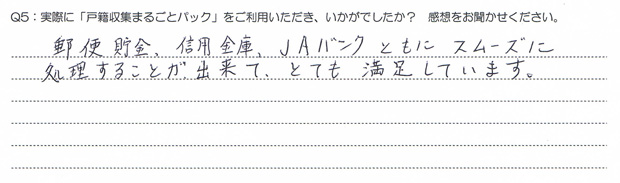 Q5：実際に「戸籍収集まるごとパック」をご利用いただき、いかがでしたか？ 感想をお聞かせください。
郵便貯金、信用金庫、JAバンクともにスムーズに
処理することが出来て、とても満足しています。